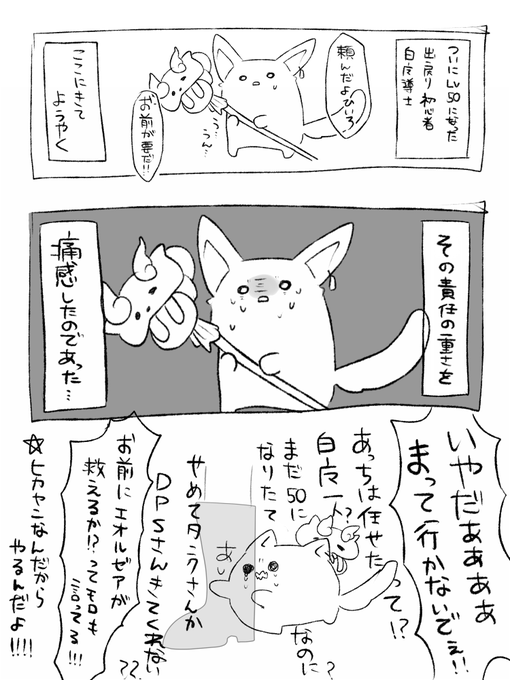 ついにLv50になった
出戻り初心者
白魔導士
頼んだよひいろ
っ
うん…
お前が要だ!!
ここにきて
ようやく
その責任の重さを
痛感したのであった…
いやだぁぁぁぁ
まって行かないでぇ!!
あっちは任せたって!?
白魔一人?
まだ50に
なりたてなのに?
やめてタンクさんか
DPSさんきてくれない??
あっ
お前にエオルゼアが
救えるか!?ってモロも
言ってる!!!
☆ヒカセンなんだから
やるんだよ!!!!